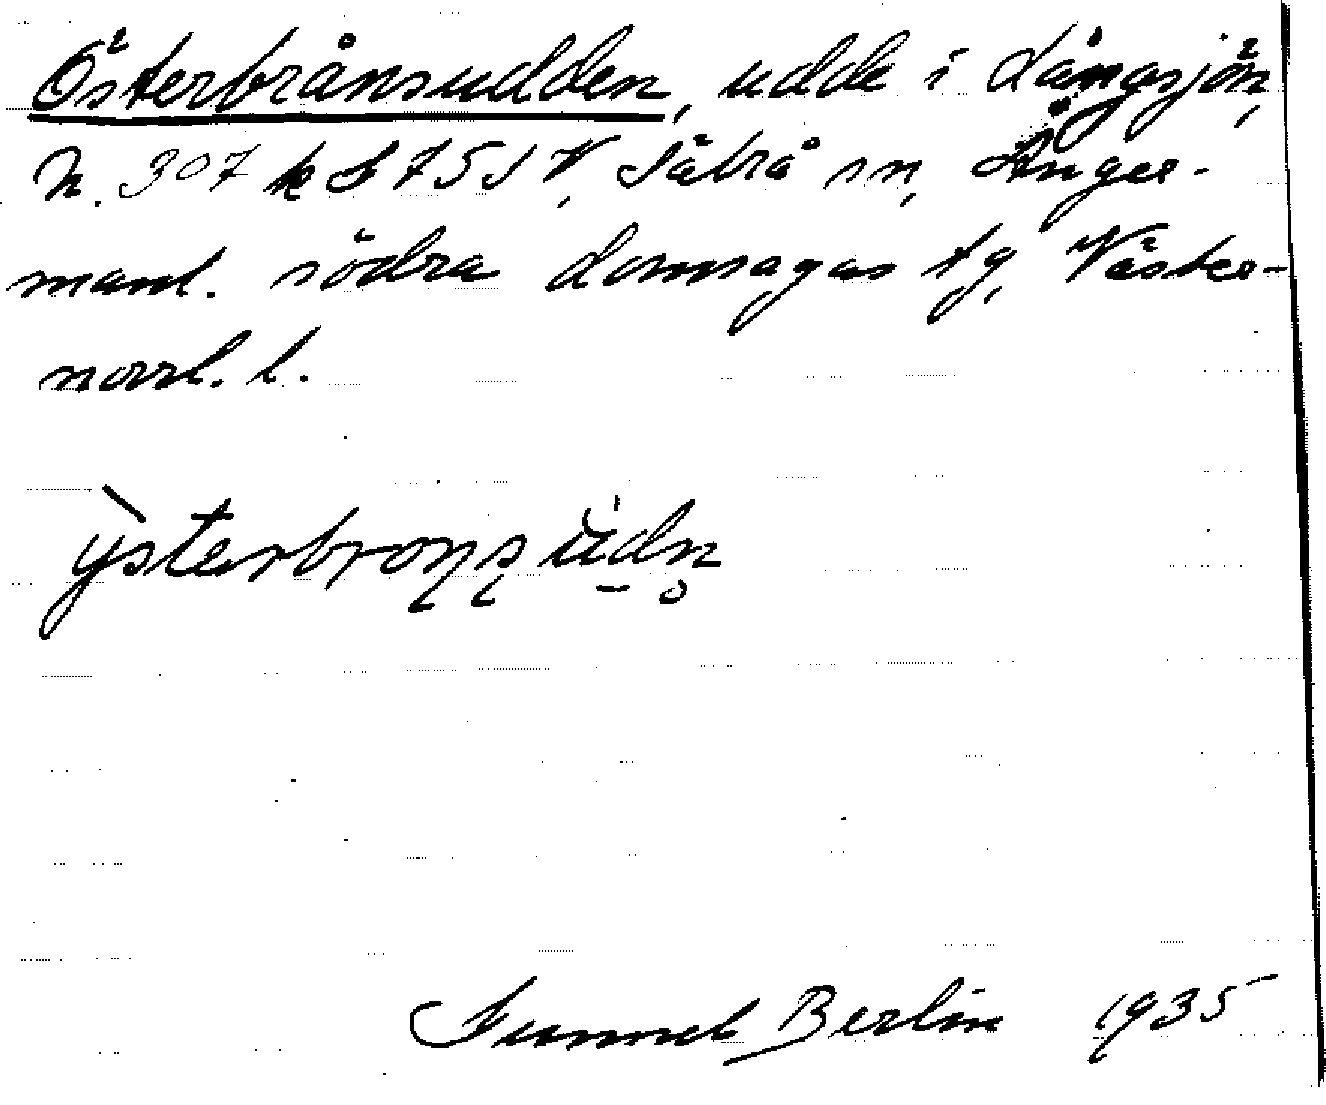 Österbrånsudden, udde i Långsjön,
N. 307 k S 75 S V, Säbrå sn, Ånger-
manl. södra domsagas tg, Väster-
norrl. l.
ỳsterbroṇṣ ùdn̥
Gunnel Berlin 1935